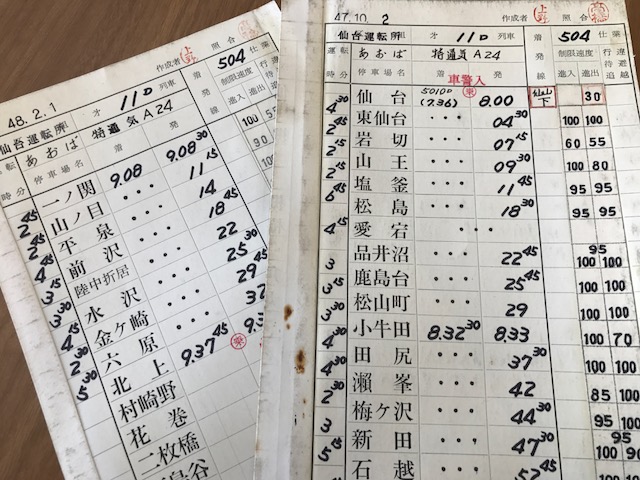 48.2.1
作成者 上野 照合
仙台運転所 才 11D 列車
504 仕業
運転 あおば 特通気A24
着発線 制限速度 行違待避
時分 停車場名 着 発 進入 進出
一ノ関 9.08 9.08 30 100
2 45 山ノ目 ・・・ 11 15 90
2 45 平泉 ・・・ 14
4 45 前沢 ・・・ 18 45
3 15 陸中折居 ・・・ 22
3 30 水沢 ・・・ 25 30
4 15 金ヶ崎 ・・・ 29 45
2 30 六原 ・・・ 32
5 30 北上 9.37 45
村崎野
花巻
二枚橋
47.10.2
作成者 上野 照合
仙台運転所 才 11D 列車
504 仕業
運転 あおば 特通気A24
着発線 制限速度 行違待避追越
時分 停車場名 着 発 進入 進出
車警入
仙台 5010D (7.36) 乗 8.00 仙山下 30
4 30 東仙台 ・・・ 04 30 100 100
2 45 岩切 ・・・ 07 15 60 55
2 15 山王 ・・・ 09 30 100 80
2 15 塩釜 ・・・ 11 45 95 95
6 45 松島 ・・・ 18 30 95 95
愛宕 ・・・
4 15 品井沼 ・・・ 22 45 95 100 100
3 鹿島台 ・・・ 25 45 100 100
3 15 松山町 ・・・ 29 100 100
3 30 小牛田 8.32 30 8.33 100 70
4 30 田尻 ・・・ 37 30 100 100
4 30 瀬峯 ・・・ 42 85 100
2 30 梅ヶ沢 ・・・ 44 30 95 100
3 新田 ・・・ 47 30 95 100 100
5 15 石越 ・・・ 52 45 100